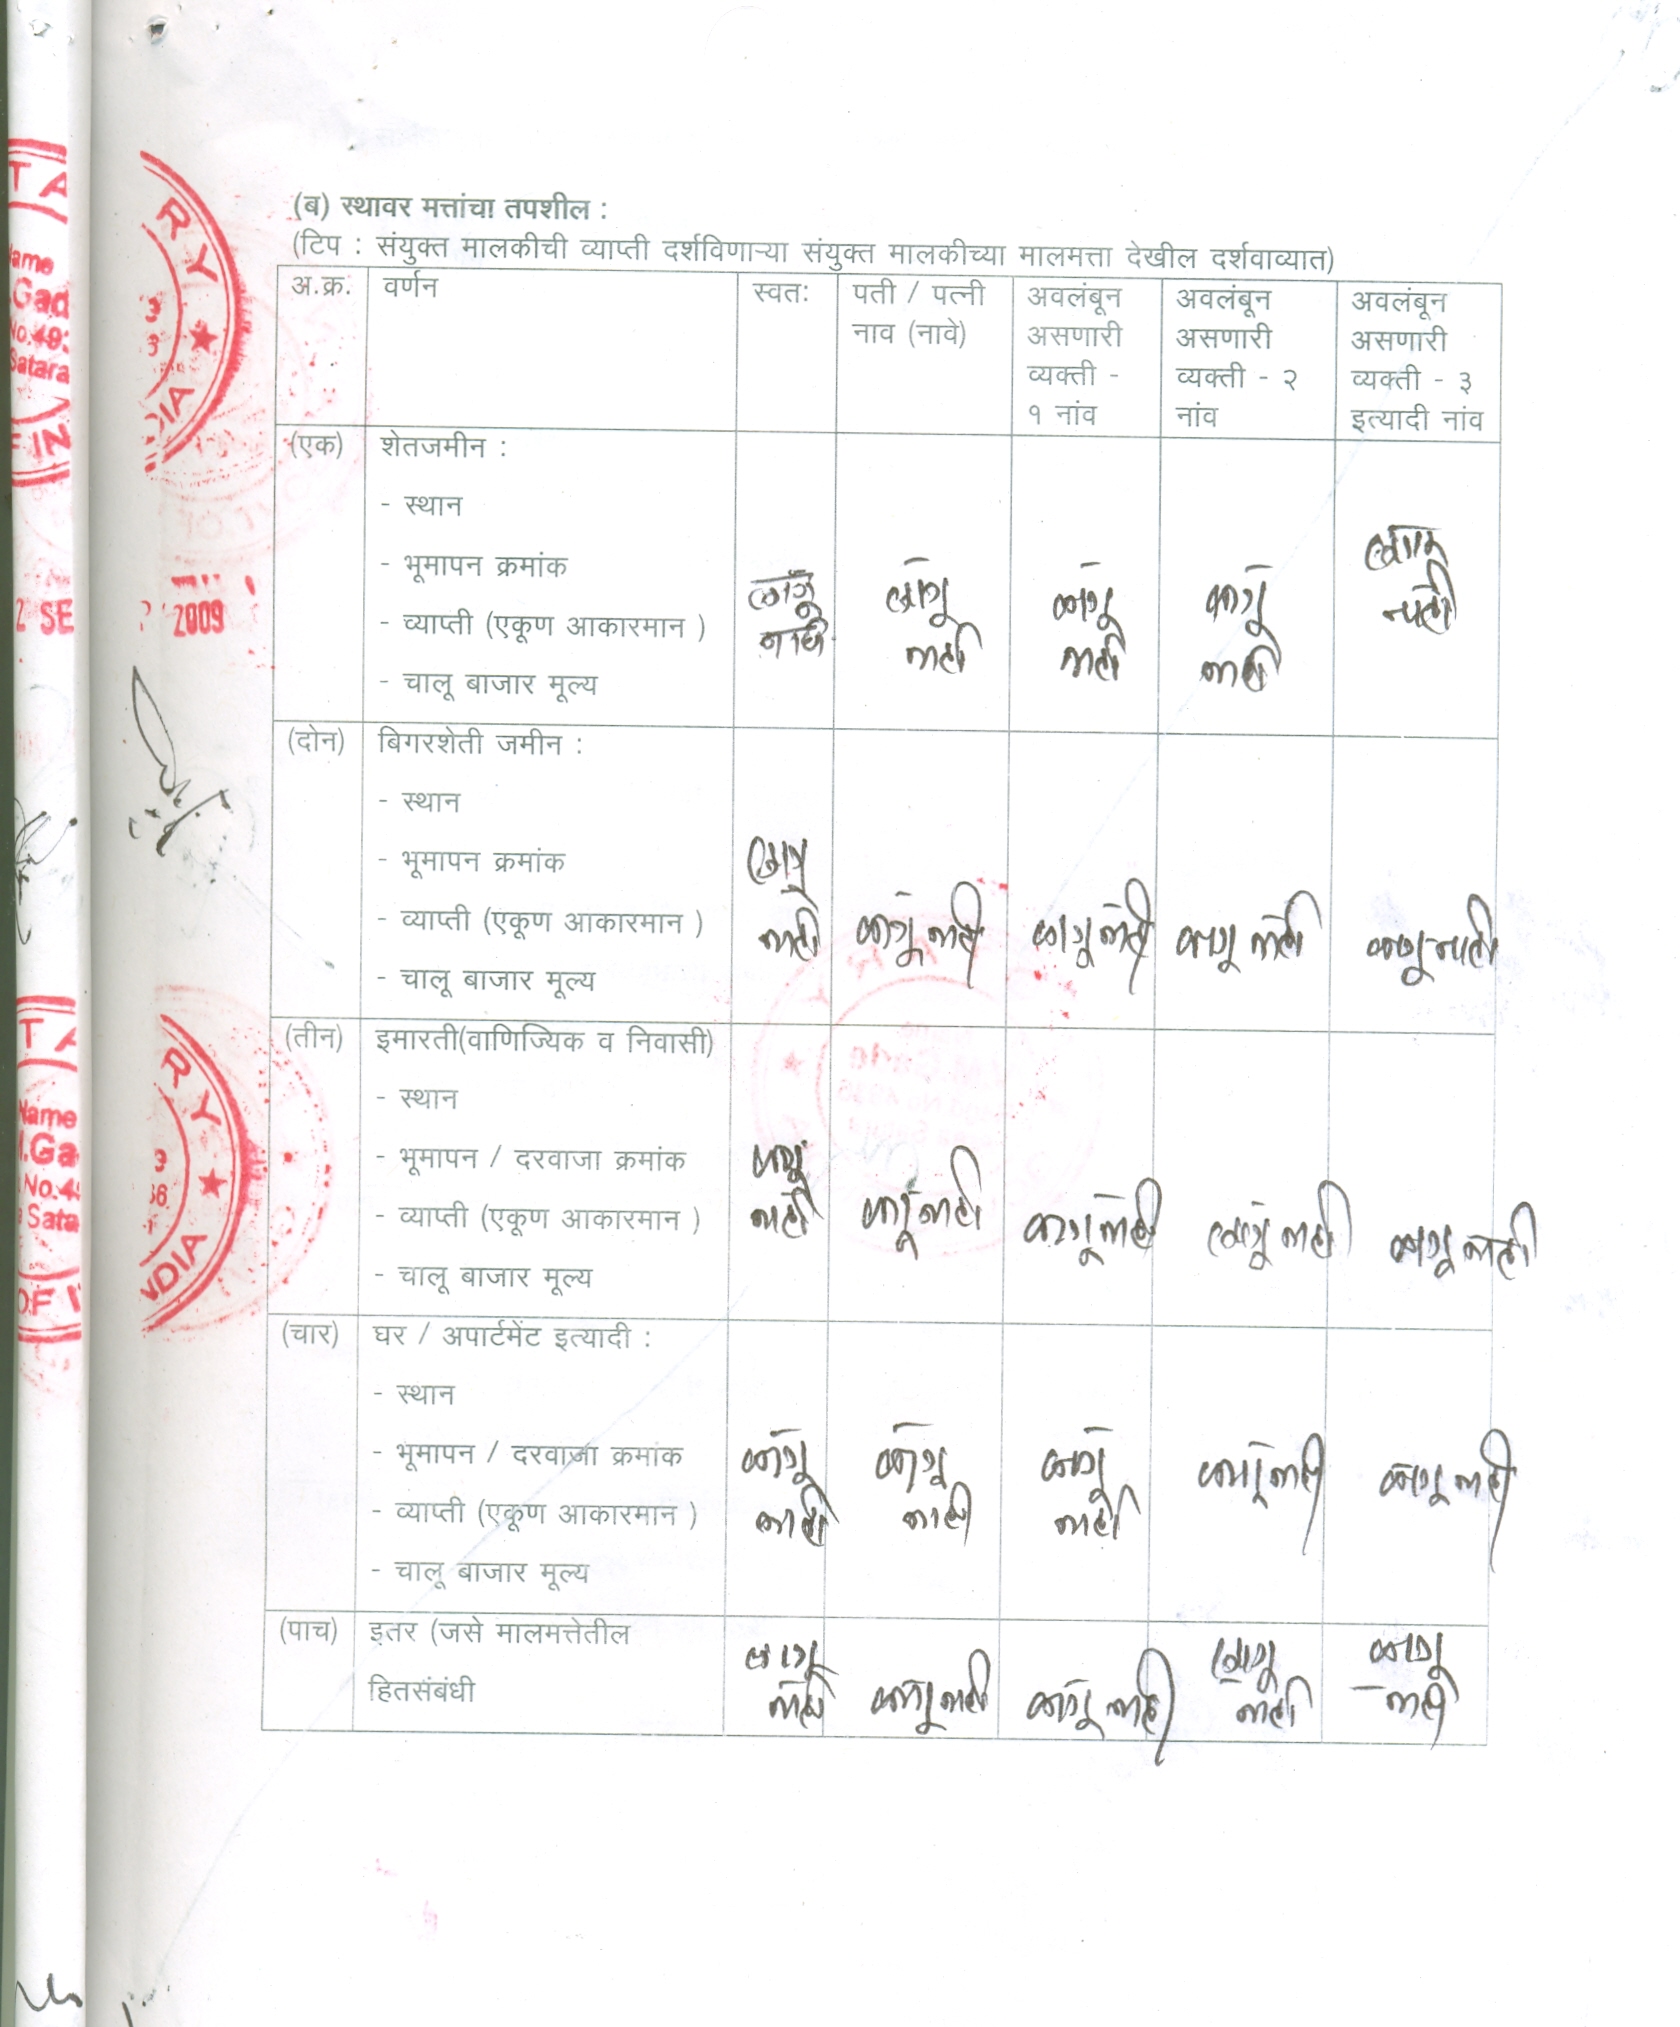 (ब) स्थावर मत्तांचा तपशील :
(टिप : संयुक्त मालकीची व्याप्ती दर्शविणाऱ्या संयुक्त मालकीच्या मालमत्ता देखील दर्शवाव्यात)
अ.क्र. वर्णन स्वतः पती / पत्नी नाव (नावे) अवलंबून असणारी व्यक्ती - १ नांव अवलंबून असणारी व्यक्ती - २ नांव अवलंबून असणारी व्यक्ती - ३ इत्यादी नांव
(एक) शेतजमीन :
- स्थान
- भूमापन क्रमांक
- व्याप्ती (एकूण आकारमान )
- चालू बाजार मूल्य
लागू नाही लागू नाही लागू नाही लागू नाही लागू नाही
(दोन) बिगरशेती जमीन :
- स्थान
- भूमापन क्रमांक
- व्याप्ती (एकूण आकारमान )
- चालू बाजार मूल्य
लागू नाही लागू नाही लागू नाही लागू नाही लागू नाही
(तीन) इमारती(वाणिज्यिक व निवासी)
- स्थान
- भूमापन / दरवाजा क्रमांक
- व्याप्ती (एकूण आकारमान )
- चालू बाजार मूल्य
लागू नाही लागू नाही लागू नाही लागू नाही लागू नाही
(चार) घर / अपार्टमेंट इत्यादी :
- स्थान
- भूमापन / दरवाजा क्रमांक
- व्याप्ती (एकूण आकारमान )
- चालू बाजार मूल्य
लागू नाही लागू नाही लागू नाही लागू नाही लागू नाही
(पाच) इतर (जसे मालमत्तेतील
हितसंबंधी
लागू नाही लागू नाही लागू नाही लागू नाही लागू नाही
2 SE
2009